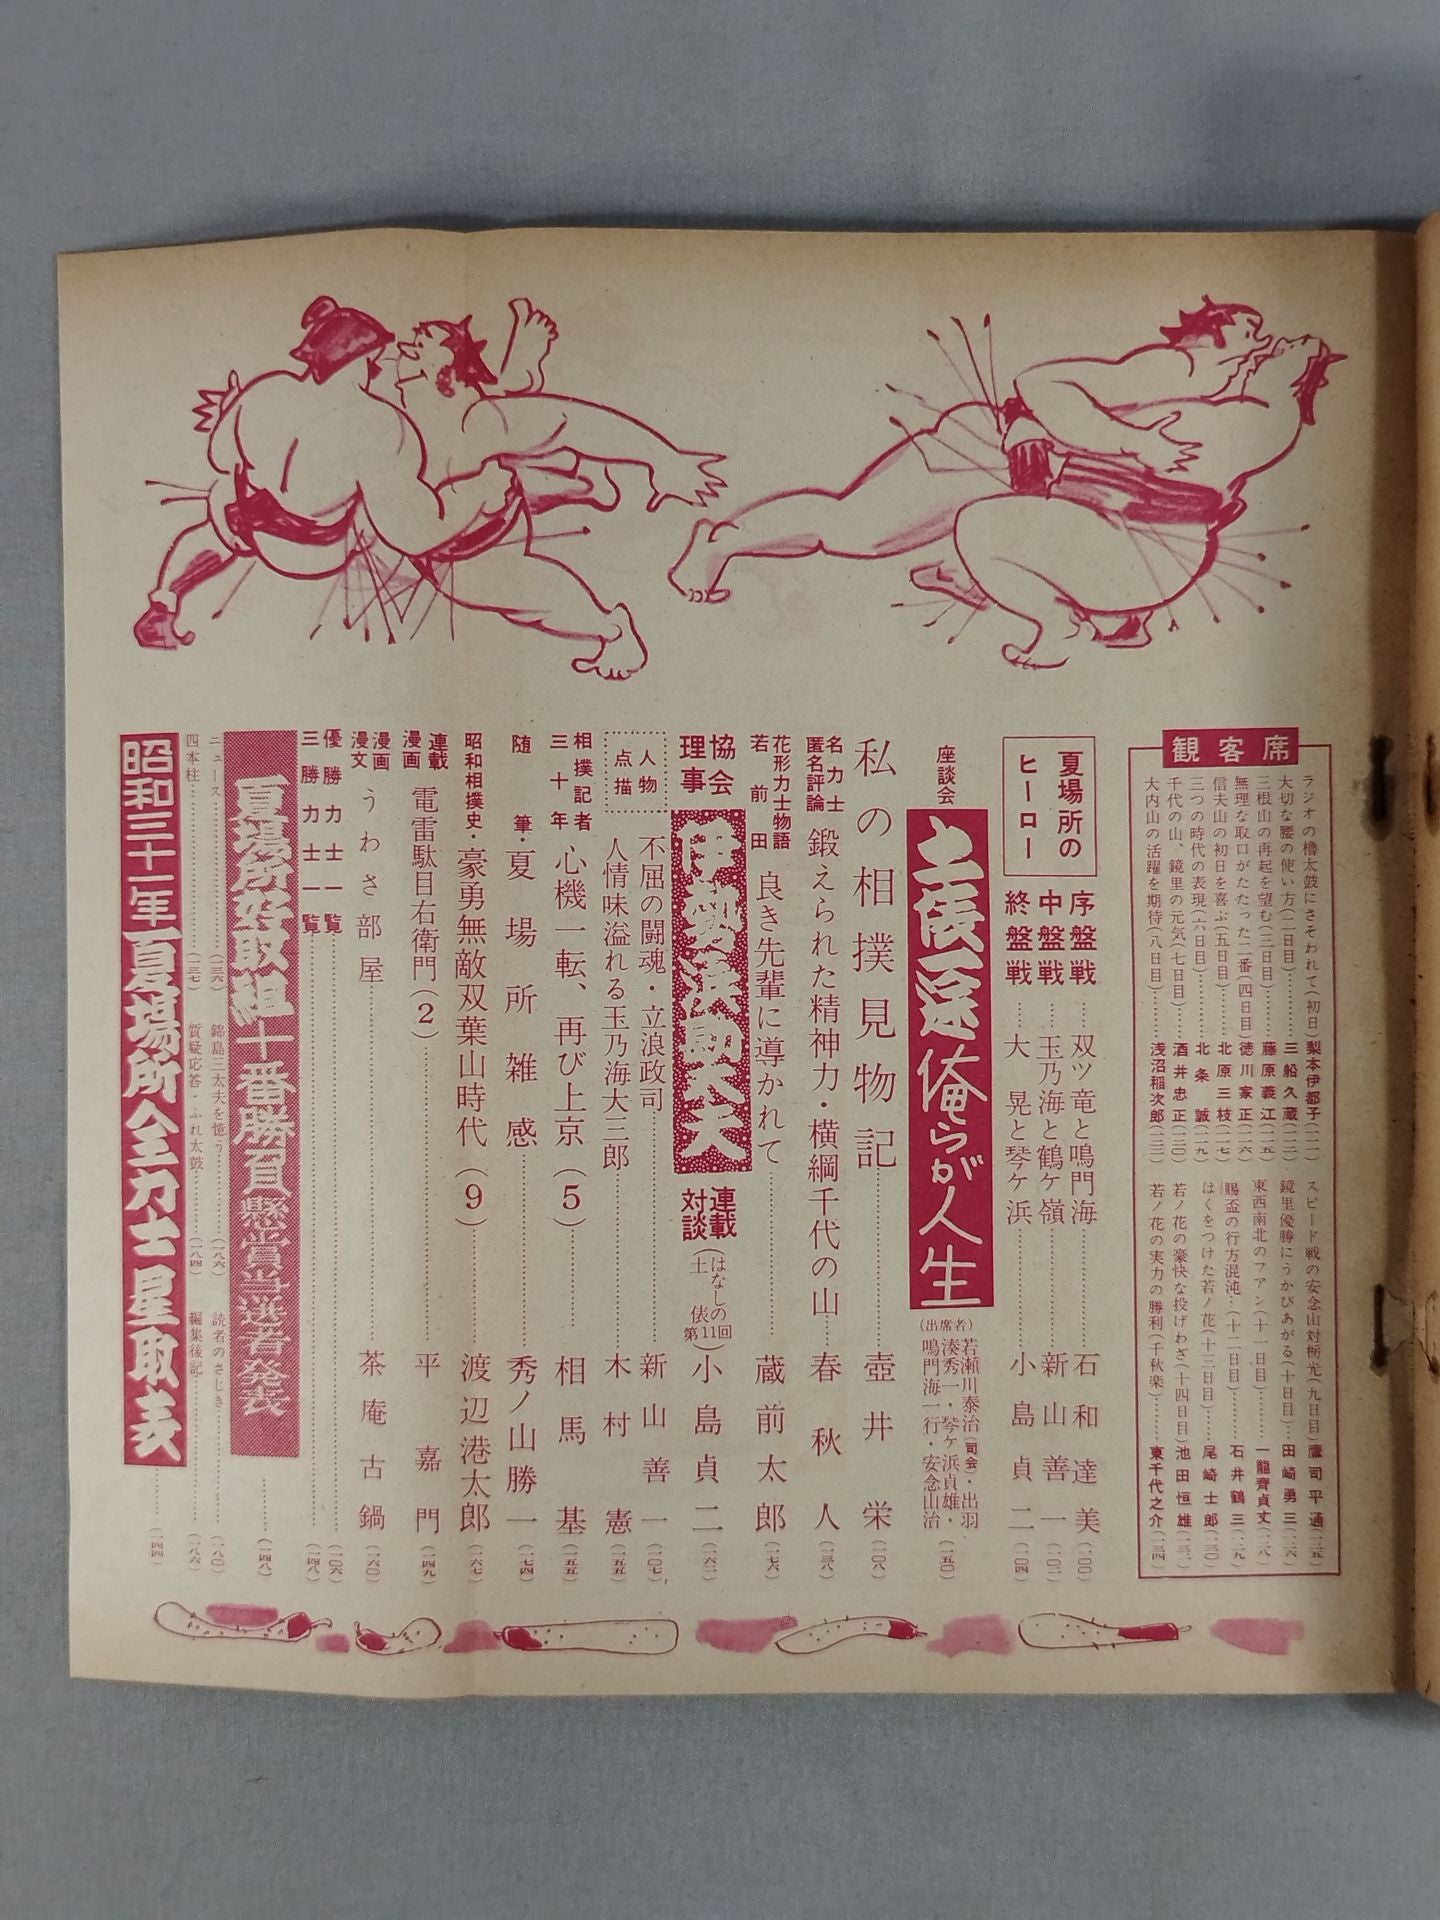 観客席
ラジオの櫓太鼓にさそわれて(初日)梨本伊都子(一一一)
大切な腰の使い方(二日目)…三船久蔵(一一三)
三根山の再起を望む(三日目)…藤原義江(一一五)
無理な取口がたたった二番(四日目)徳川家正(一一六)
信夫山の初日を喜ぶ(五日目)…北原三枝(一一七)
三つの時代の表現(六日目)…北条誠(一一九)
千代の山、鏡里の元気(七日目)…酒井忠正(一二〇)
大内山の活躍を期待(八日目)…浅沼稲次郎(一二三)
スピード戦の安念山対栃光(九日目)鷹司平通(一二五)
鏡里優勝にうかびあがる(十日目)…田崎勇三(一二六)
東西南北のフアン(十一日目)…一龍齊貞丈(一二八)
賜盃の行方混沌…(十二日目)…石井鶴三(一二九)
はくをつけた若ノ花(十三日目)…尾崎士郎(一三〇)
若ノ花の豪快な投げわざ(十四日目)池田恒雄(一三一)
若ノ花の実力の勝利(千秋楽)…東千代之介(一三四)
夏場所の
ヒーロー
序盤戦…双ツ竜と鳴門海…石和達美(一〇〇)
中盤戦…玉乃海と鶴ケ嶺…新山善一(一〇二)
終盤戦…大晃と琴ケ浜…小島貞二(一〇四)
座談会
土俵一途 俺らが人生
(出席者)
若瀬川泰治(司会)・出羽
湊秀一・琴ケ浜貞雄・
鳴門海一行・安念山治(一五〇)
私の相撲見物記…壺井栄(一〇八)
名力士
匿名評論
鍛えられた精神力・横綱千代の山…春秋人(一三八)
花形力士物語
若前田
良き先輩に導かれて…蔵前太郎(一七六)
協会
理事
伊勢ケ浜勘太夫
連載
対談
(はなしの
土俵 第11回)
小島貞二(一六二)
人物
点描
不屈の闘魂・立浪政司…新山善一(一〇七)
人情味溢れる玉乃海大三郎…木村憲(一五五)
相撲記者
三十年
心機一転、再び上京(5)…相馬基(一五五)
随筆・夏場所雑感…秀ノ山勝一(一七四)
昭和相撲史・豪勇無敵双葉山時代(9)…渡辺港太郎(一六七)
連載
漫画
電雷駄目右衛門(2)…平嘉門(一四九)
漫画
漫文
うわさ部屋…茶庵古鍋(一六〇)
優勝力士一覧…(一〇六)
三勝力士一覧…(一四八)
夏場所好取組十番勝負懸賞当選者発表…(一四八)
ニュース…(一三六)
錦島三太夫を憶う…(一八六)
読者のさじき…(一八〇)
四本柱…(一三七)
質疑応答・ふれ太鼓…(一八四)
編集後記…(一八六)
昭和三十一年夏場所全力士星取表…(一四四)